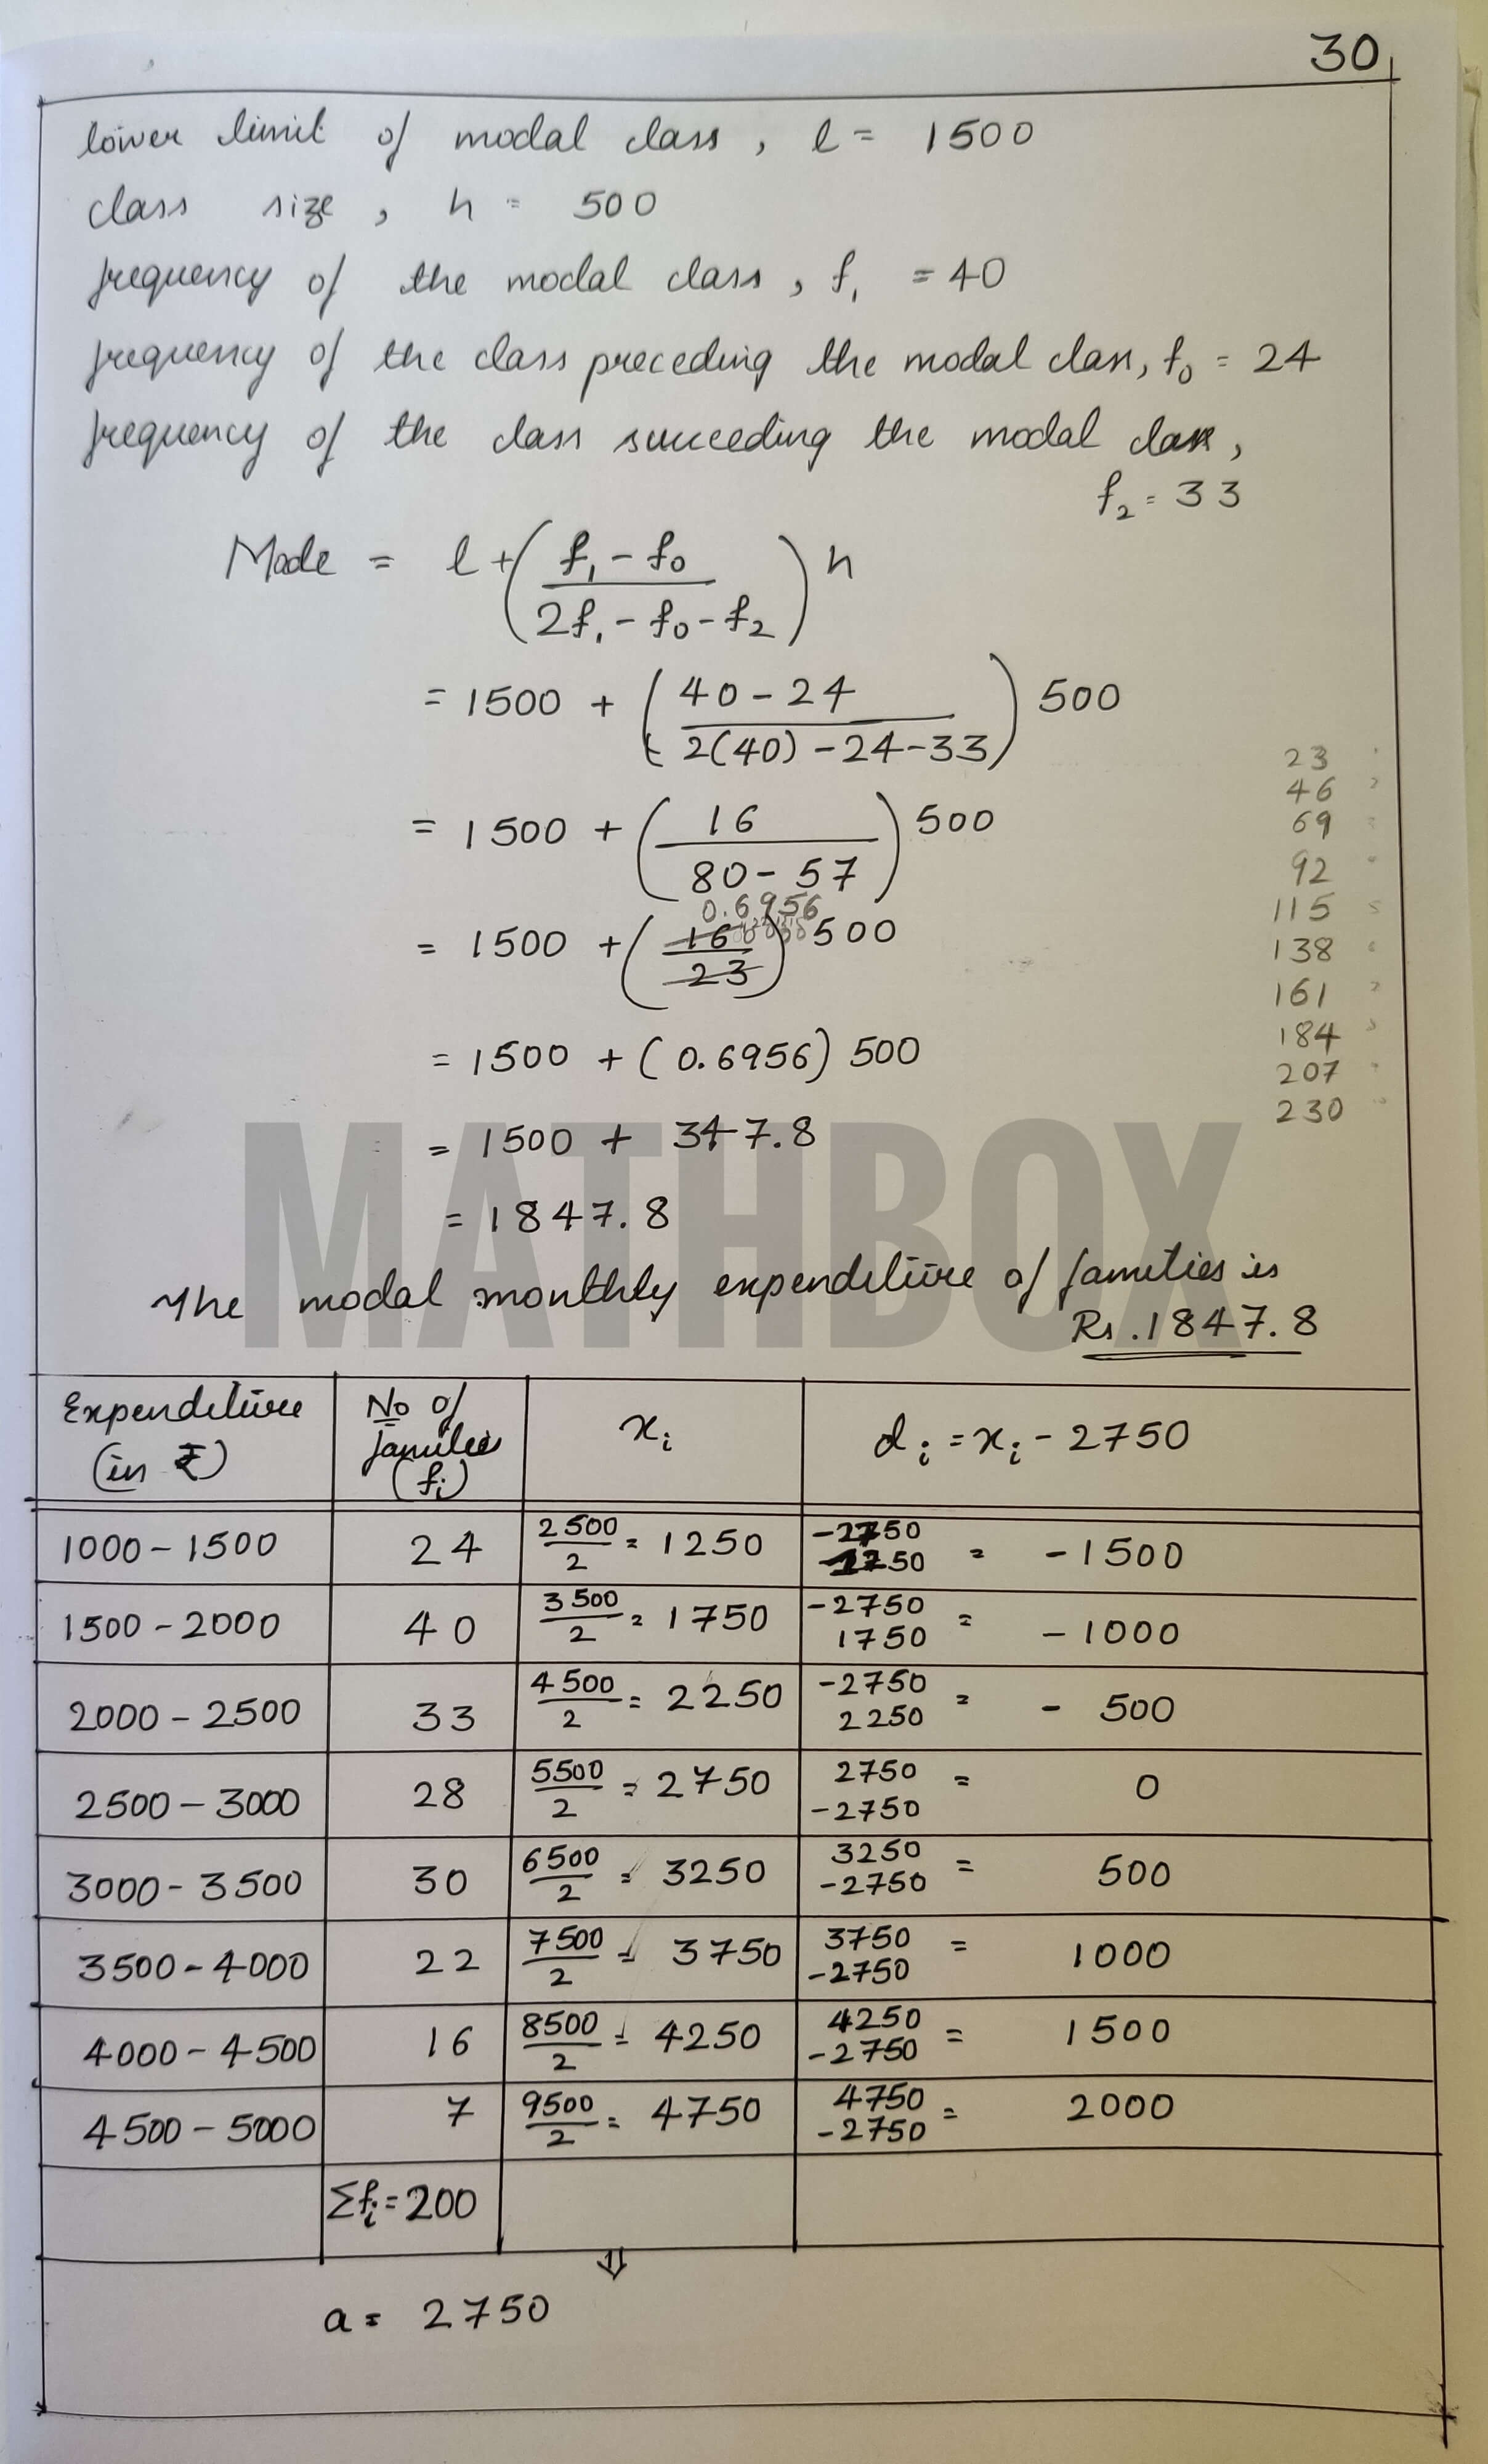 30
lower limit of modal class, l = 1500
class size, h = 500
frequency of the modal class, f₁ = 40
frequency of the class preceding the modal class, f₀ = 24
frequency of the class succeeding the modal class,
f₂ = 33
Mode = l + ( (f₁ - f₀) / (2f₁ - f₀ - f₂) ) h
= 1500 + ( (40 - 24) / (2(40) - 24 - 33) ) 500
= 1500 + ( 16 / (80 - 57) ) 500
0.6956
= 1500 + ( 16 / 23 ) 500
= 1500 + (0.6956) 500
= 1500 + 347.8
= 1847.8
23
46
69
92
115
138
161
184
207
230
MATHBOX
The modal monthly expenditure of families is
Rs. 1847.8
Expenditure (in ₹) | No of families (fi) | xi | di = xi - 2750
1000 - 1500 | 24 | 2500/2 = 1250 | -2750 1250 = -1500
1500 - 2000 | 40 | 3500/2 = 1750 | -2750 1750 = -1000
2000 - 2500 | 33 | 4500/2 = 2250 | -2750 2250 = - 500
2500 - 3000 | 28 | 5500/2 = 2750 | 2750 -2750 = 0
3000 - 3500 | 30 | 6500/2 = 3250 | 3250 -2750 = 500
3500 - 4000 | 22 | 7500/2 = 3750 | 3750 -2750 = 1000
4000 - 4500 | 16 | 8500/2 = 4250 | 4250 -2750 = 1500
4500 - 5000 | 7 | 9500/2 = 4750 | 4750 -2750 = 2000
Σfi = 200
⇓
a = 2750